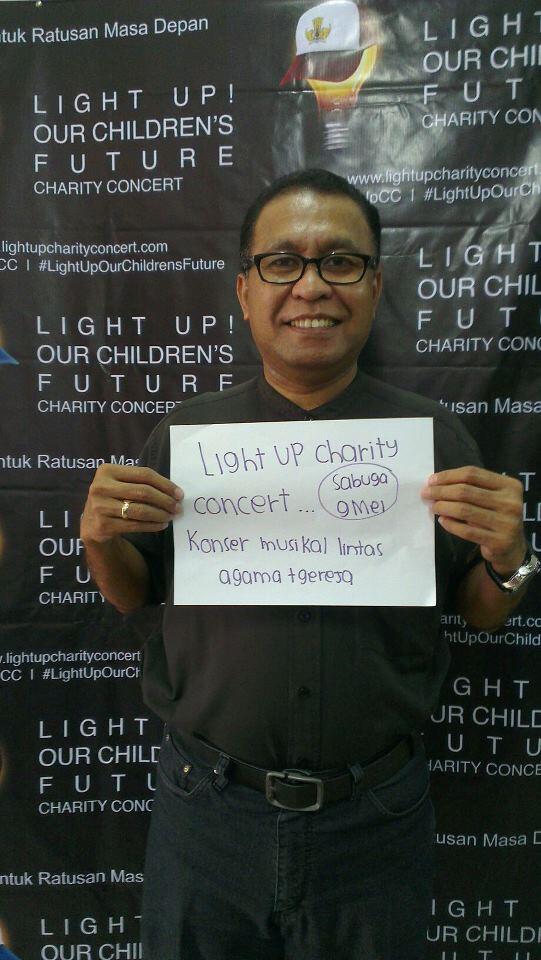 ntuk Ratusan Masa Depan
LIGHT UP!
OUR CHILDREN'S
FUTURE
CHARITY CONCERT
LIGHT
OUR CHI
FUT
CHARITY CON
www.lightupcharityconcert.
pCC I #LightUpOurCh
lightupcharityconcert.com
CC I #LightUpOurChildrensFuture
LIGHT UP!
OUR CHILDREN'S
FUTURE
CHARITY CONCEP
LIGHT
OUR CHIL
FUT
CHARITY CONC
tusan Masa
ntuk Ratusan Ma
Light UP charity
concert... Sabuga
9 Mei
Konser musikal lintas
agama + gereja
LI
OUR
FU
CHARIT
w.lightupcharityconcert
CC I #LightUpOurCh
arity
rt.co
htUpOurChild
LIGHT
OUR CHILD
FUTU
CHARITY CONC
GHT
UR CHILD
UTU
HARITY CONCE
tusan Masa D
ntuk Ratusan Mas
LIGH
OUR CHI
IGHT
UR CHIL